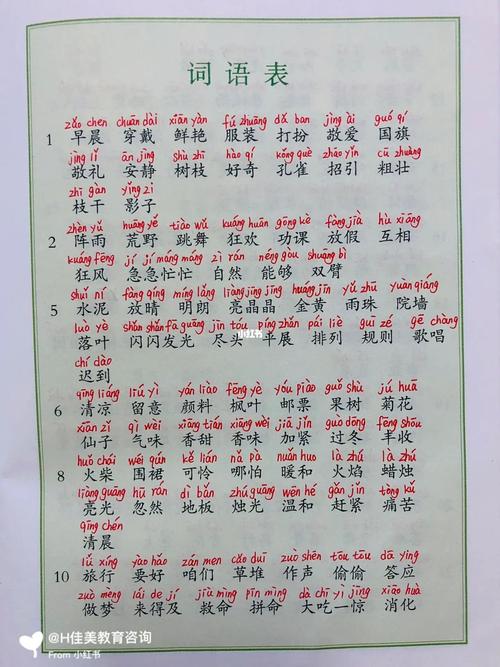 词语表
zǎo chen chuān dài xiān yàn fú zhuāng dǎ ban jìng ài guó qí
1 早晨 穿戴 鲜艳 服装 打扮 敬爱 国旗
jìng lǐ ān jìng shù zhī hào qí kǒng què zhāo yǐn cū zhuàng
敬礼 安静 树枝 好奇 孔雀 招引 粗壮
zhī gàn yǐng zi
枝干 影子
zhèn yǔ huāng yě tiào wǔ kuáng huān gōng kè fàng jià hù xiāng
2 阵雨 荒野 跳舞 狂欢 功课 放假 互相
kuáng fēng jí jí máng máng zì rán néng gòu shuāng bì
狂风 急急忙忙 自然 能够 双臂
shuǐ ní fàng qíng míng lǎng liàng jīng jīng huáng jīn yǔ zhū yuàn qiáng
5 水泥 放晴 明朗 亮晶晶 金黄 雨珠 院墙
luò yè shǎn shǎn fā guāng jìn tóu píng zhǎn pái liè guī zé gē chàng
落叶 闪闪发光 尽头 平展 排列 规则 歌唱
小红书
chí dào
迟到
qīng liáng liú yì yán liào fēng yè yóu piào guǒ shù jú huā
6 清凉 留意 颜料 枫叶 邮票 果树 菊花
xiān zǐ qì wèi xiāng tián xiāng wèi jiā jǐn guò dōng fēng shōu
仙子 气味 香甜 香味 加紧 过冬 丰收
huǒ chái wéi qún kě lián nǎ pà nuǎn huo huǒ là zhú là zhú
8 火柴 围裙 可怜 哪怕 暖和 火焰 蜡烛
liàng guāng hū rán dì bǎn zhú guāng wēn hé gǎn jǐn tòng kǔ
亮光 忽然 地板 烛光 温和 赶紧 痛苦
qīng chén
清晨
lǚ xíng yào hǎo zán men cǎo duī zuò shēng tōu tōu dā ying
10 旅行 要好 咱们 草堆 作声 偷偷 答应
zuò mèng lái de jí jiù mìng pīn mìng dà chī yì jīng xiāo huà
做梦 来得及 救命 拼命 大吃一惊 消化
@H佳美教育咨询
From 小红书